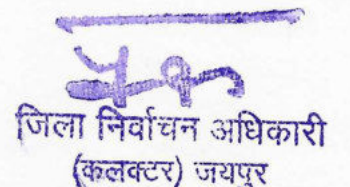 जिला निर्वाचन अधिकारी
(कलक्टर) जयपुर